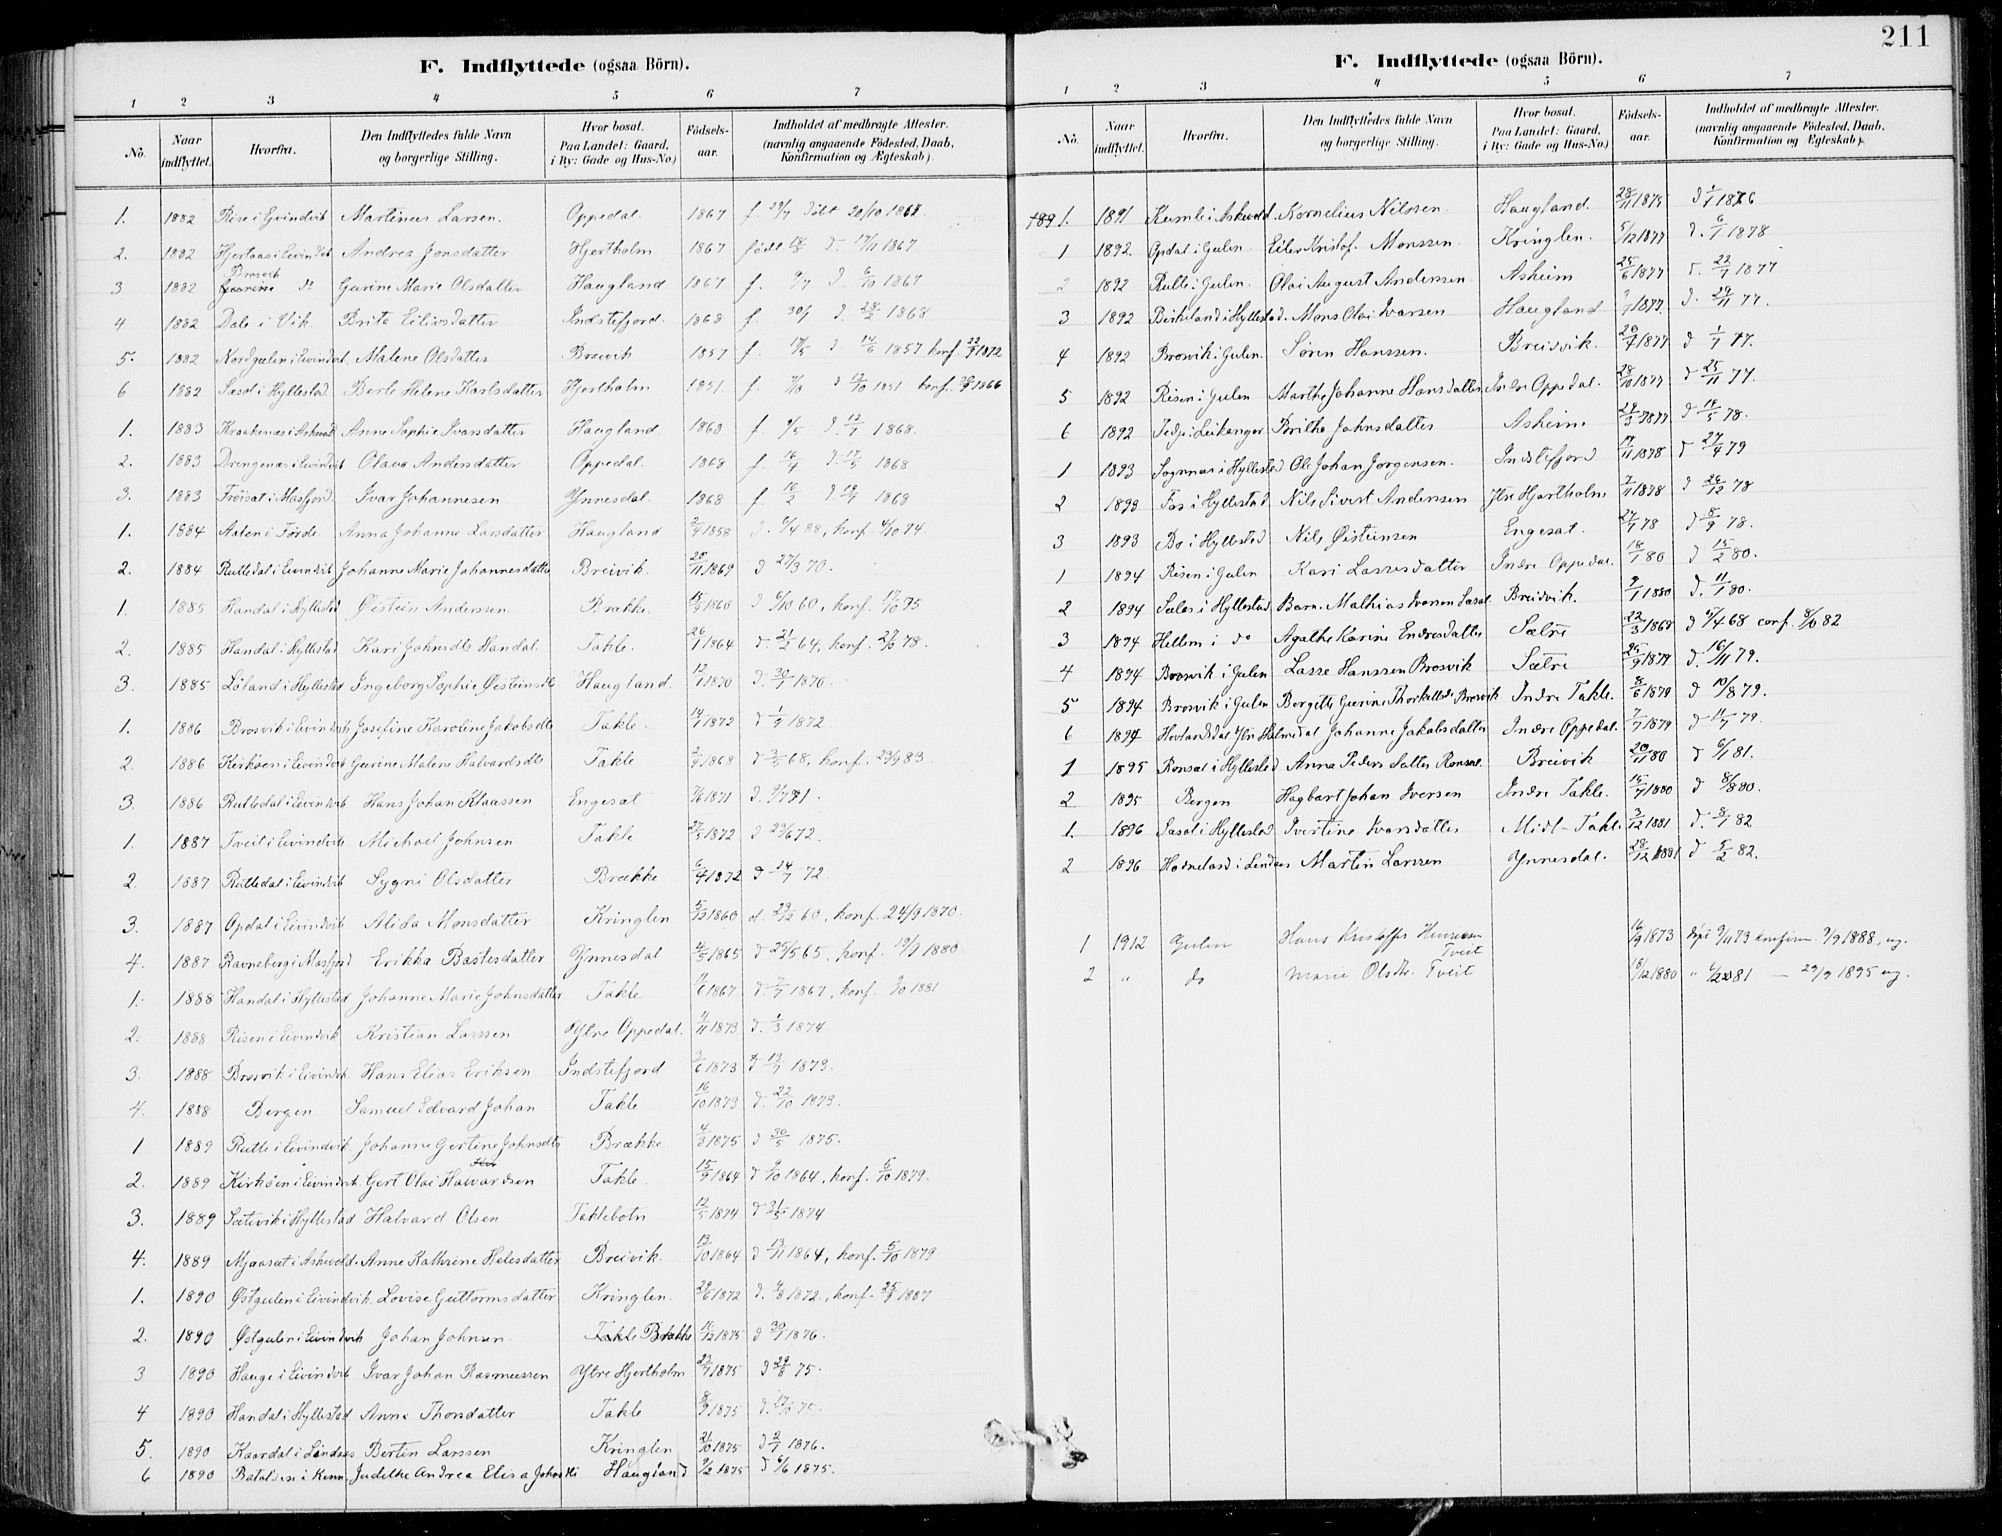 F. Indflyttede (ogsaa Börn).
1 2 3 4 5 6 7
No. Naar indflyttet. Hvorfra. Den Indflyttedes fulde Navn og borgerlige Stilling. Hvor bosat. Paa Landet: Gaard, i By: Gade og Hus-No.) Födsels-aar. Indholdet af medbragte Attester. (navnlig angaaende Födested, Daab, Konfirmation og Ægteskab).
1. 1882 Rise i Evindvik Martinus Larsen. Oppedal. 1867 f. 29/7 döbt 20/10 1867.
2. 1882 Hjertaas i Eivindvik Andrea Jonsdatter Hjertholm 1867 født 18/8 d. 17/11 1867.
3 1882 Brosvik do Gurine Marie Olsdatter Haugland 1867 f. 9/7 d. 6/10 1867
4 1882 Dale i Vik Brita Eiliusdatter Indstefjord. 1868 f. 30/1 d. 28/3 1868
5. 1882 Nordgulen i Eivindvik. Malene Olsdatter Breivik 1857 f. 17/5 d. 14/6 1857 konf. 22/9 1872
6 1882 Sæsol i Hyllestad Berte Helene Karlsdatter Hjertholm 1851. f. 7/8 d 12/10 1851 konf. 1866
1. 1883 Kraakenæs i Askvold Anne Sophie Ivarsdatter Haugland 1868 f. 9/5 d. 12/7 1868.
2. 1883 Drengenæs i Eivindvik Olava Andersdatter Oppedal. 1868 f. 16/4 d. 17/5 1868
3. 1883 Fröiset i Masfjord. Ivar Johannesen Ynnesdal. 1868 f. 16/2 d. 19/4 1868
1. 1884 Aalen i Förde Anna Johanne Larsdatter Haugland 1858 konf. 4/10 74.
2. 1884 Rutledal i Eivindvik Johanne Marie Johannesdatter Breivik. 28/11 1869 d 27/3 70.
1. 1885 Handal i Hyllestad Øistein Andersen Brække 15/9 1860 d 6/10 60, konf. 17/10 75
2. 1885 Handal i Hyllestad Kari Johnsdtr Handal. Takle. 26/1 1864 d. 21/2 64, konf. 78.
3. 1885 Löland i Hyllestad Ingeborg Sophie Øisteinsdtr Haugland. 12/7 1870 d. 30/7 1870.
1. 1886 Brosvik i Eivindvik Josefine Karoline Jakobsdtr Takle. 14/7 1872 d 1/9 1872
2. 1886 Kirköen i Eivindvik Gurine Malene Halvardsdtr Takle 1868 d 3/5 68, konf. 23/9 83.
3. 1886 Rutledal i Eivindvik Hans Johan Klaassen Engesæt 7/6 1871 d. 9/7 71.
1. 1887 Tveit i Eivindvik Michael Johnsen Takle 27/5 1872 d 23/6 72.
2. 1887 Rutledal i Eivindvik Sygni Olsdatter Brække 6/4 1872 d 14/7 72.
3. 1887 Opdal i Eivindvik Alida Monsdatter Kringlen 5/12 1860 d. 60, konf. 24/9 1870.
4. 1887 Ravneberg i Masfjord Erikka Bastesdatter Ynnesdal 4/5 1865 d 25/5 65, konf. 19/9 1880.
1. 1888 Handal i Hyllestad Johanne Marie Johnsdatter Takle 11/6 1867 d. 7/7 1867, konf. 1881.
2. 1888 Risen i Eivindvik Kristian Larssen Ytre Oppedal. 4/11 1873 d. 1/3 1874.
3. 1888 Brosvik i Eivindvik Hans Elias Eriksen Indstefjord 2/6 1873 d 13/7 1873.
4. 1888 Bergen Samuel Edvard Johan Takle 16/10 1873 d. 22/10 1873.
1 1889 Rutle i Eivindvik Johanne Gertine Johnsdtr Brække 4/3 1875 d 30/5 1875.
2. 1889 Kirköen i Eivindvik Gert Olai Halvardsen Takle. 15/9 1864 d 9/10 1864, konf. 5/10 1879.
3. 1889 Sætevik i Hyllestad Halvard Olsen Taklebotn 12/5 1874 d 31/5 1874
4. 1889 Mjaasæt i Askvold. Anne Kathrine Helesdatter Breivik. 13/10 1864 d 13/11 1864, konf. 5/10 1879
1. 1890 Østgulen i Eivindvik. Lovise Guttormsdatter Kringlen. 29/6 1872 d. 4/8 1872., konf. 25/9 1887
2. 1890 Østgulen i Eivindvik Johan Johnsen. Takle Brække 11/12 1875 d 30/1 1876.
3 1890 Hauge i Eivindvik Ivar Johan Rasmussen Ytre Hjertholm 23/7 1875 d 29/8 75.
4 1890 Handal i Hyllestad Anna Thorsdatter Takle 8/9 1875 d. 17/10 75.
5. 1890 Kaardal i Lindaas Bertin Larssen Kringlen 31/10 1875 d 2/7 1876.
6 1890 Batalden i Kinn Judithe Andrea Elisa Johnsdtr Haugland 9/2 1875 d 6/6 1875.
211
F. Indflyttede (ogsaa Börn).
1 2 3 4 5 6 7
No. Naar indflyttet. Hvorfra. Den Indflyttedes fulde Navn og borgerlige Stilling. Hvor bosat. Paa Landet: Gaard, i By: Gade og Hus-No.) Födsels-aar. Indholdet af medbragte Attester. (navnlig angaaende Födested, Daab, Konfirmation og Ægteskab).
1891. 1891 Kumle i Askvold Kornelius Nilssen. Haugland. 28/11 1875 d 1/1 1876
1 1892. Opdal i Gulen. Eiler Kristof. Monssen. Kringlen. 5/12 1877 d. 6/1 1878
2 1892 Rutle i Gulen. Olai August Andersen. Asheim 25/6 1877 d. 22/7 1877
3 1892 Birkeland i Hyllestad. Mons Olai Ivarsen Haugland 1877. d. 29/11 77.
4 1892 Brosvik i Gulen. Sören Hanssen. Breivik. 26/4 1877 d 1/7 77.
5 1892 Risen i Gulen Marthe Johanne Hansdatter Indre Oppedal. 28/10 1877 d 25/11 77.
6 1892 Tedje i Leikanger Brithe Johnsdatter Asheim 29/3 1877 d 19/5 78.
1 1893 Sognnes i Hyllestad Ole Johan Jorgensen. Indstefjord 17/11 1878 d 27/4 79
2 1893 Fos i Hyllestad Nils Sivert Andersen Ytre Hjertholm 7/11 1878 d 26/12 78
3 1893 Bö i Hyllestad Nils Øisteinsen Engesæt. 27/7 78 d 8/9 78.
1 1894 Risen i Gulen Kari Lassesdatter Indre Oppedal. 18/1 80 d 15/2 80.
2 1894 Sæles i Hyllestad Barn. Mathias Iversen Sæsol Breidvik. 9/1 1880 d. 11/1 80.
3 1894 Hellem i do Agathe Karine Endresdatter Sætre 22/3 1868 d 5/4 68 conf. 8/10 82
4 1894 Brosvik i Gulen Lasse Hanssen Brosvik Sætre 25/9 1879 d. 16/11 79.
5 1894 Brosvik i Gulen Borgitte Gurine Thorkelsdtr Brosvik Indre Takle. 8/6 1879 d 10/8 79.
6 1894 Hovlandsdal Ytre Holmedal Johanne Jakobsdatter Indre Oppedal. 7/7 1879 d 11/7 79.
1 1895 Ronsæt i Hyllestad Anna Pedersdatter Ronsæt. Breivik 20/11 80 d 6/1 81.
2 1895 Bergen Hagbart Johan Iversen Indre Takle. 15/7 1880 d 8/8 80.
1. 1896 Sæsol i Hyllestad Ivertine Ivarsdatter Midt-Takle 3/12 1881 d. 8/1 82
2 1896 Hodneland i Lindaas Martin Larssen Ynnesdal. 28/12 1881 d 5/2 82.
1 1912 Gulen Hans Kristoffer Tveit 16/9 1873 döpt 9/11 73 konfirm. 7/9 1888, ug.
2 " do Marie Olsdtr. Tveit 18/12 1880 " 81 — 29/9 1895 ug.